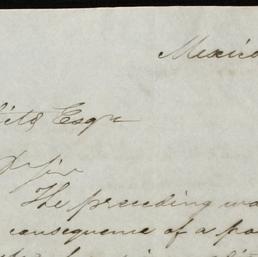 Mexico
Esqr
Dr Sir
The preceding wa
consequence of a pa